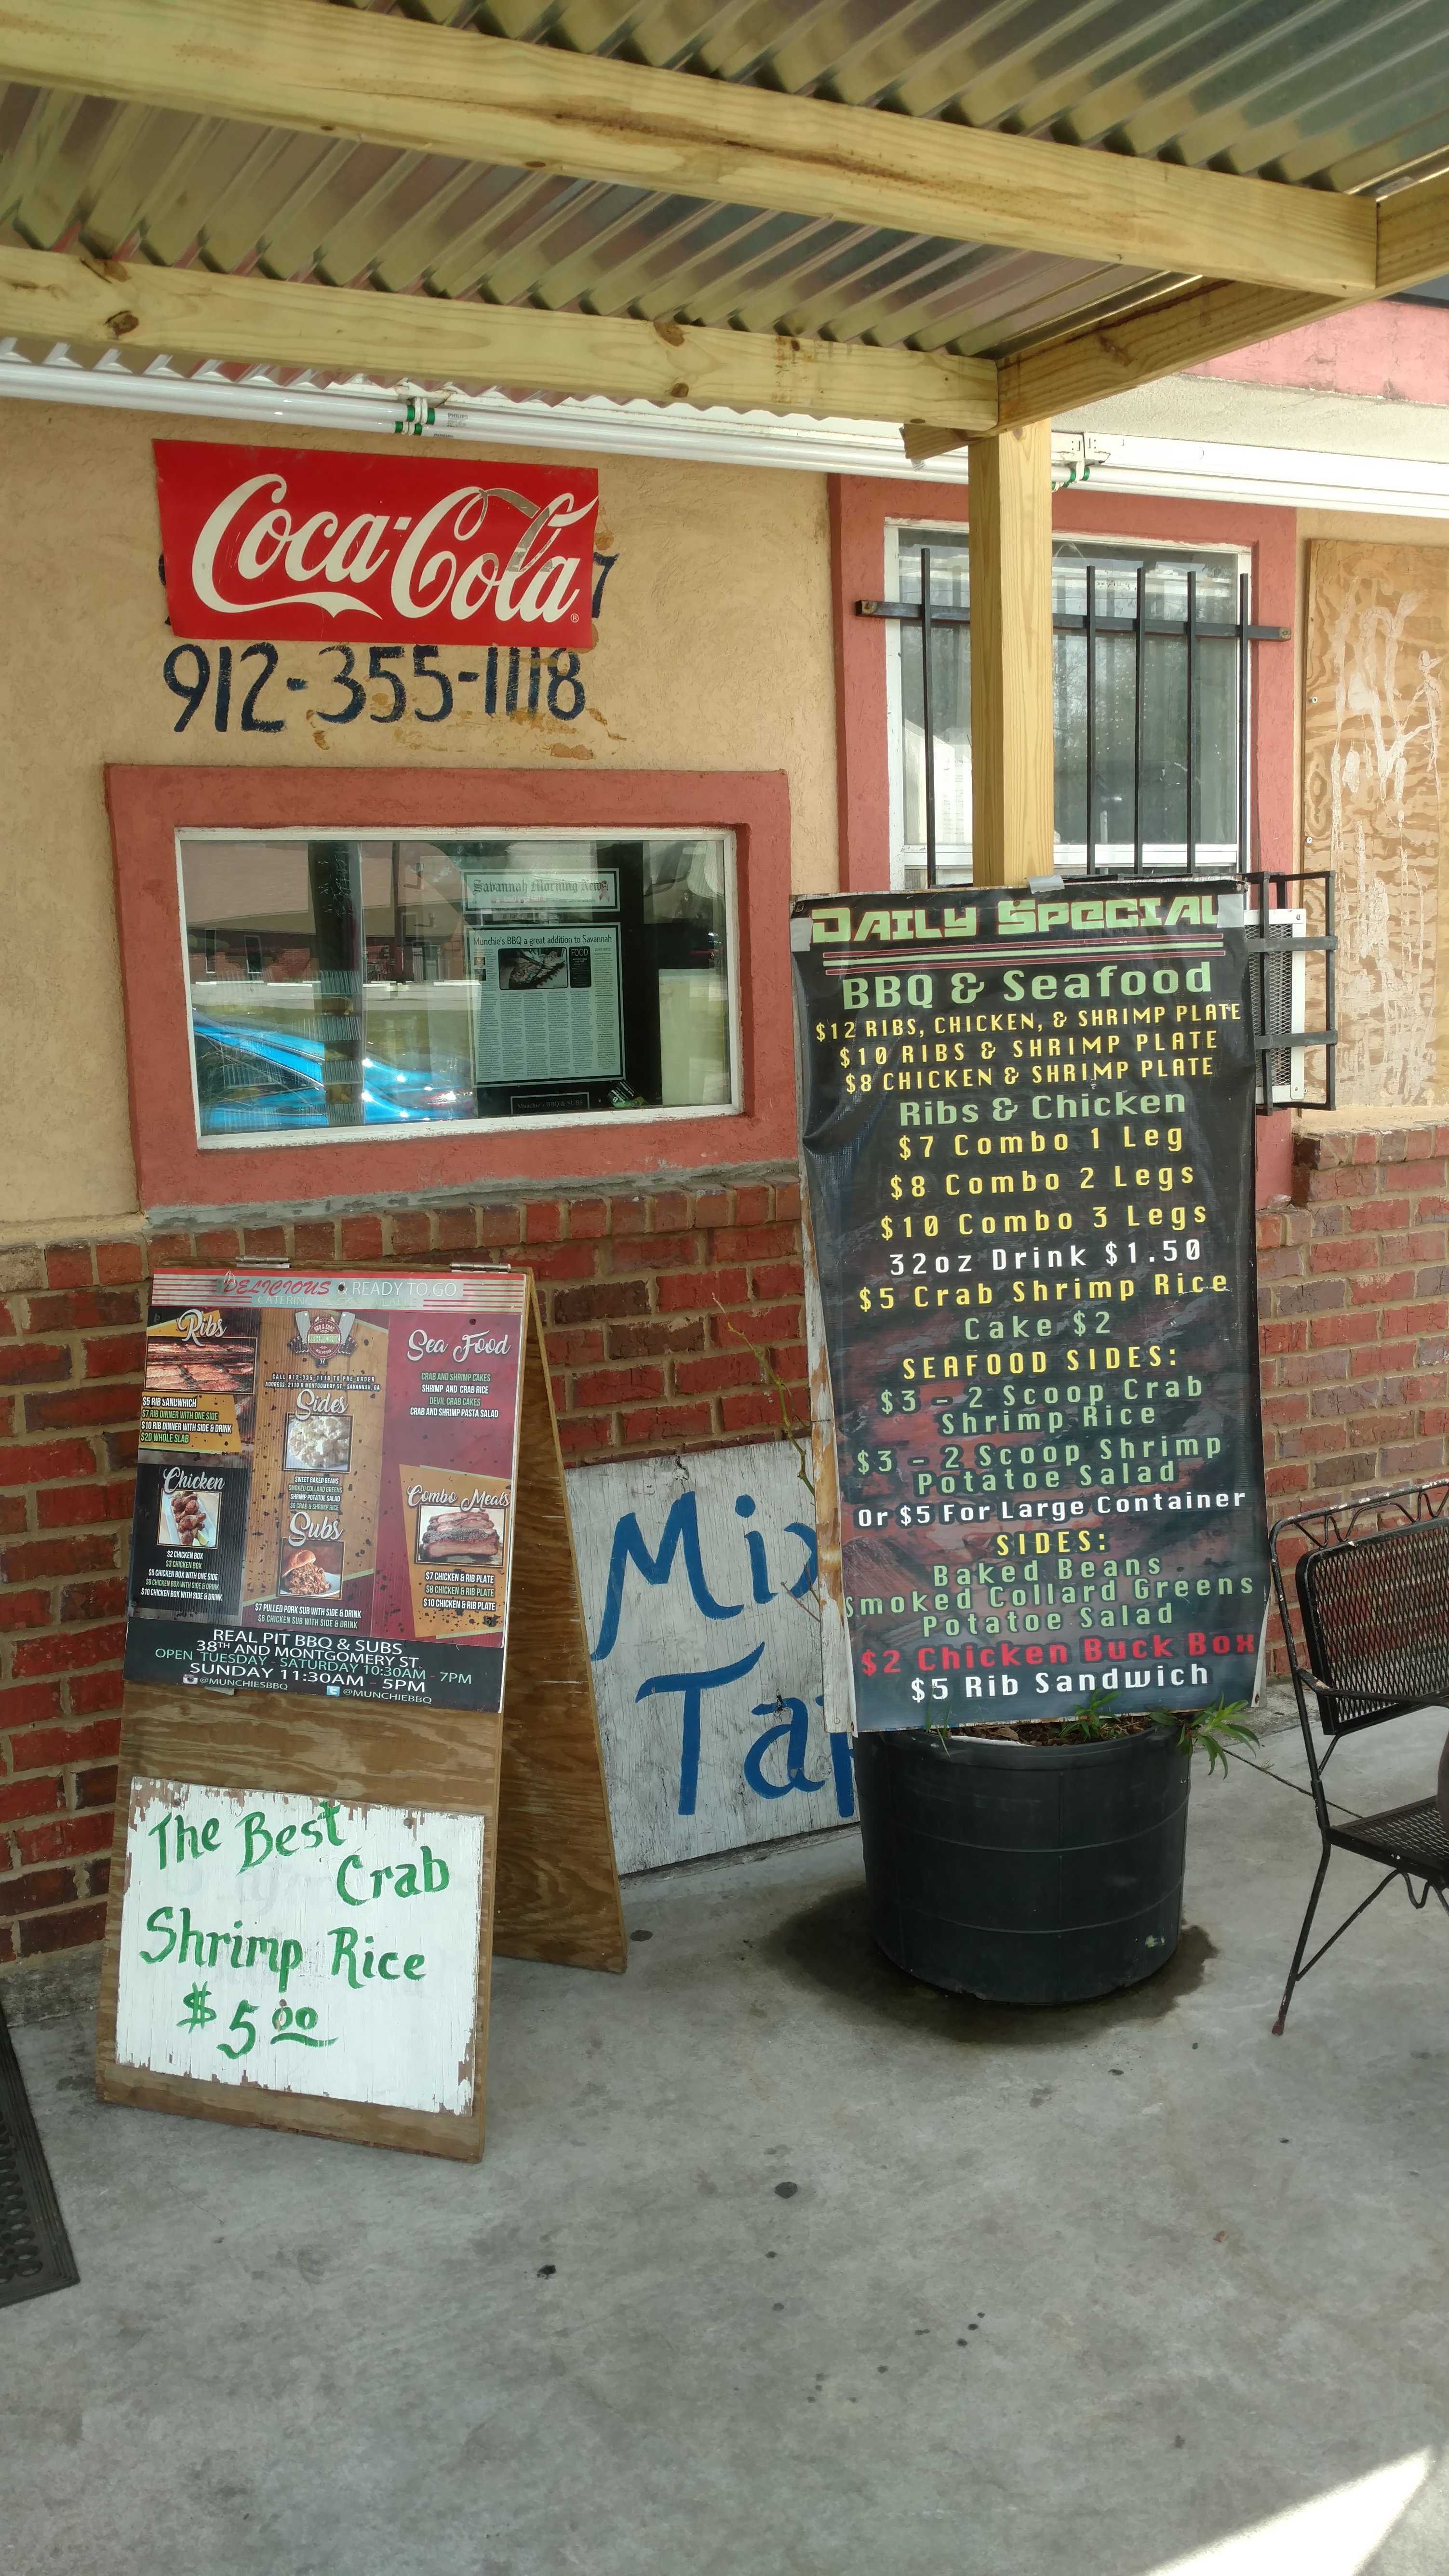 Coca-Cola
®
7
912-355-1118
Savannah Morning News
Munchie's BBQ a great addition to Savannah
FOOD
Munchie's BBQ & SUBS
DELICIOUS • READY TO GO
Ribs
$5 RIB SANDWHICH
$7 RIB DINNER WITH ONE SIDE
$10 RIB DINNER WITH SIDE & DRINK
$20 WHOLE SLAB
Chicken
$2 CHICKEN BOX
$3 CHICKEN BOX
$5 CHICKEN BOX WITH ONE SIDE
$8 CHICKEN BOX WITH SIDE & DRINK
$10 CHICKEN BOX WITH SIDE & DRINK
Sides
SWEET BAKED BEANS
SMOKED COLLARD GREENS
SHRIMP POTATOE SALAD
$5 CRAB & SHRIMP RICE
Subs
$7 PULLED PORK SUB WITH SIDE & DRINK
$6 CHICKEN SUB WITH SIDE & DRINK
Sea Food
CRAB AND SHRIMP CAKES
SHRIMP AND CRAB RICE
DEVIL CRAB CAKES
CRAB AND SHRIMP PASTA SALAD
Combo Meals
$7 CHICKEN & RIB PLATE
$8 CHICKEN & RIB PLATE
$10 CHICKEN & RIB PLATE
REAL PIT BBQ & SUBS
38TH AND MONTGOMERY ST.
OPEN TUESDAY - SATURDAY 10:30AM - 7PM
SUNDAY 11:30AM - 5PM
@MUNCHIESBBQ
@MUNCHIEBBQ
The Best
Crab
Shrimp Rice
$5.00
Mix
Tap
DAILY SPECIAL
BBQ & Seafood
$12 RIBS, CHICKEN, & SHRIMP PLATE
$10 RIBS & SHRIMP PLATE
$8 CHICKEN & SHRIMP PLATE
Ribs & Chicken
$7 Combo 1 Leg
$8 Combo 2 Legs
$10 Combo 3 Legs
32oz Drink $1.50
$5 Crab Shrimp Rice
Cake $2
SEAFOOD SIDES:
$3 - 2 Scoop Crab
Shrimp Rice
$3 - 2 Scoop Shrimp
Potatoe Salad
Or $5 For Large Container
SIDES:
Baked Beans
Smoked Collard Greens
Potatoe Salad
$2 Chicken Buck Box
$5 Rib Sandwich